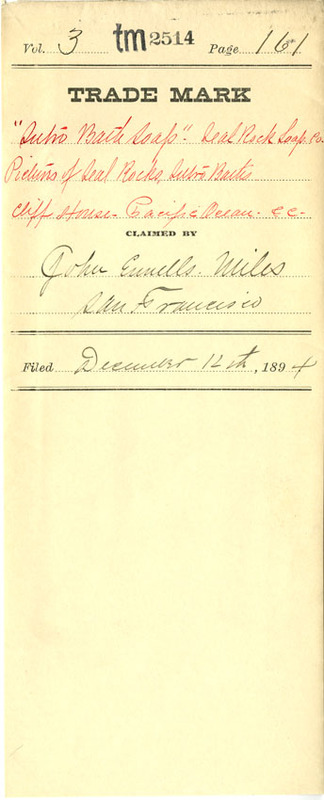 Vol. 3 tm 2514 Page 161
TRADE MARK
"Sutro Bath Soap". Seal Rock Soap Co.
Picture of Seal Rocks, Sutro Baths
Cliff House - Pacific Ocean - &c -
CLAIMED BY
John Ennells. Miles
San Francisco
Filed December 12th, 1894